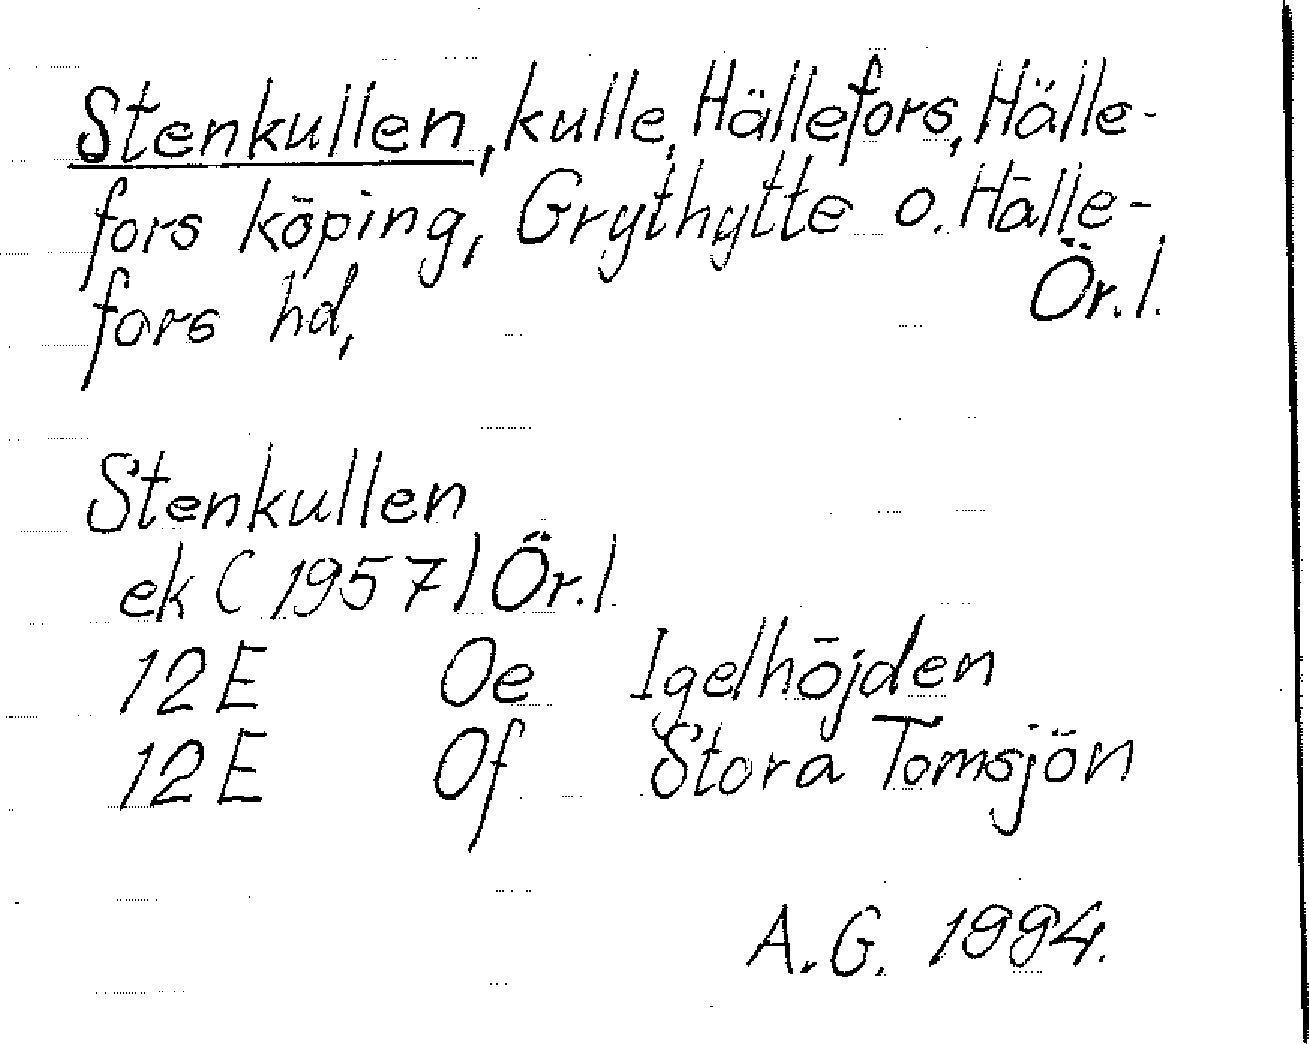 Stenkullen, kulle, Hällefors, Hälle-
fors köping, Grythytte o. Hälle-
fors hd, Ör.l.
Stenkullen
ek (1957) Ör.l.
12E Oe Igelhöjden
12E Of Stora Tomsjön
A.G. 1994.